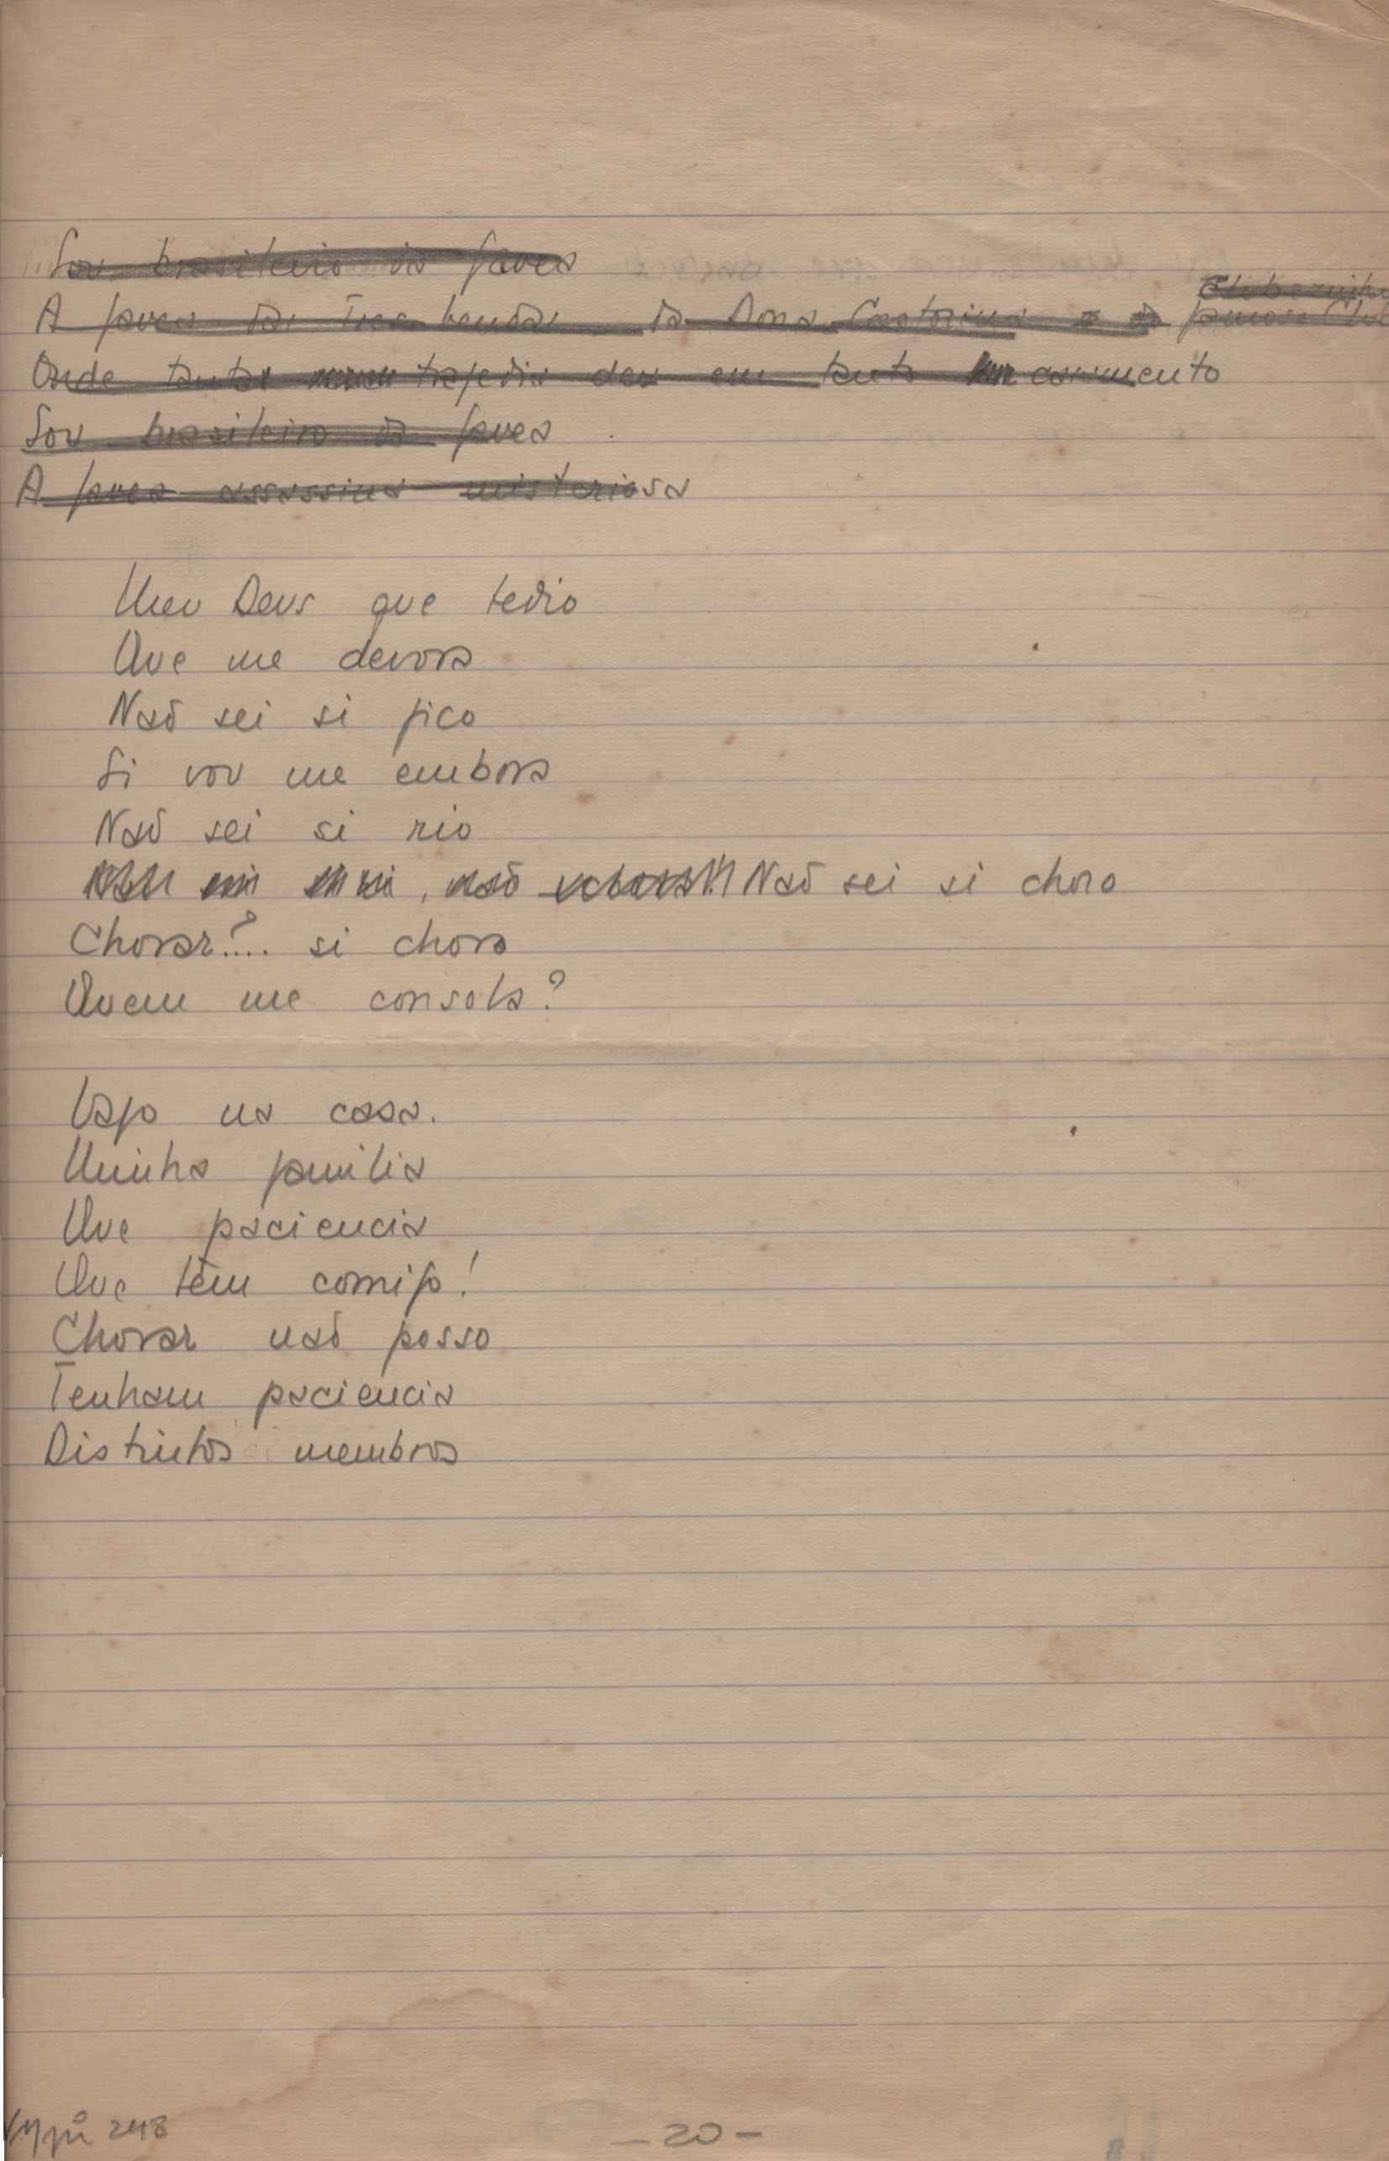 Sou brasileiro da gavea
A gavea das Tres bandas, da Dona Castorina e da famosa
Onde tanta tragedia deu em tanto casamento
Sou brasileiro da gavea
A gavea assassina misteriosa
Meu Deus que tedio
Que me devora
Naõ sei si fico
Si vou me embora
Naõ sei si rio
Naõ sei si choro
Chorar?... si choro
Quem me consola?
Vago na casa.
Minha familia
Que paciencia
Que têm comigo!
Chorar naõ posso
Tenham paciencia
Distintos membros
248
- 20 -